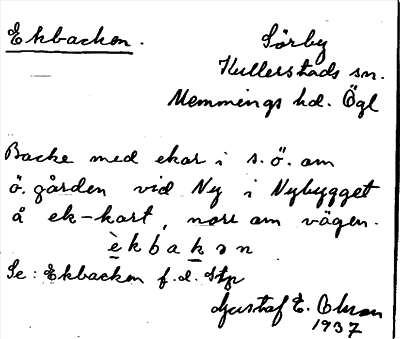 Ekbacken.
Sörby
Kullerstads sn.
Memmings hd. Ögl
Backe med ekar i s.ö. om
ö. gården vid Ny i Nybygget
å ek-kart, norr om vägen.
èkbakən
Se: Ekbacken f.d. Stp
Gustaf E. Olsson
1937